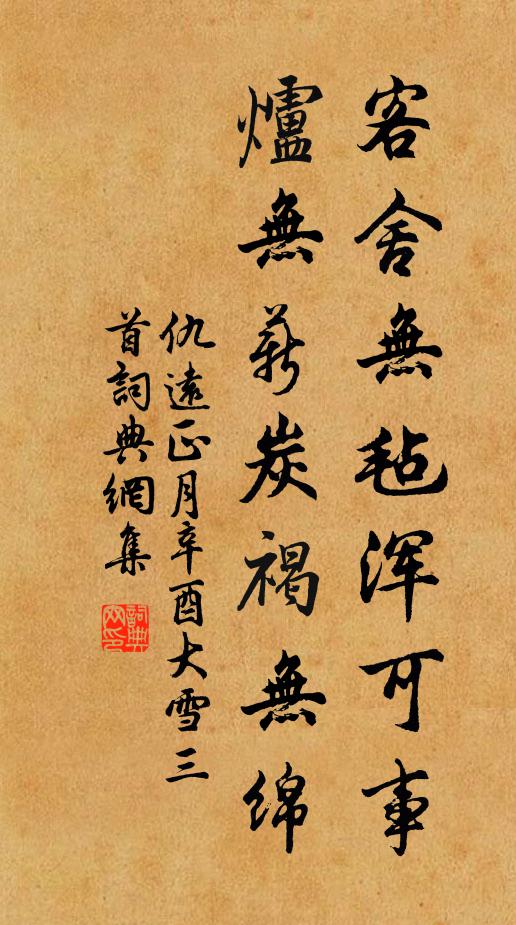 客舍無毡浑可事
爐無薪炭褐無绵
仇遠正月辛酉大雪三
首詞典網集
詞典網印